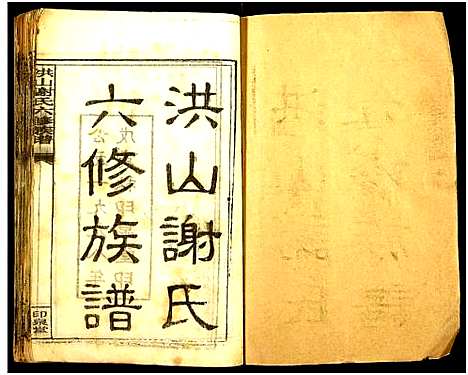 洪山謝氏
六修族譜
洪山謝氏六修族譜